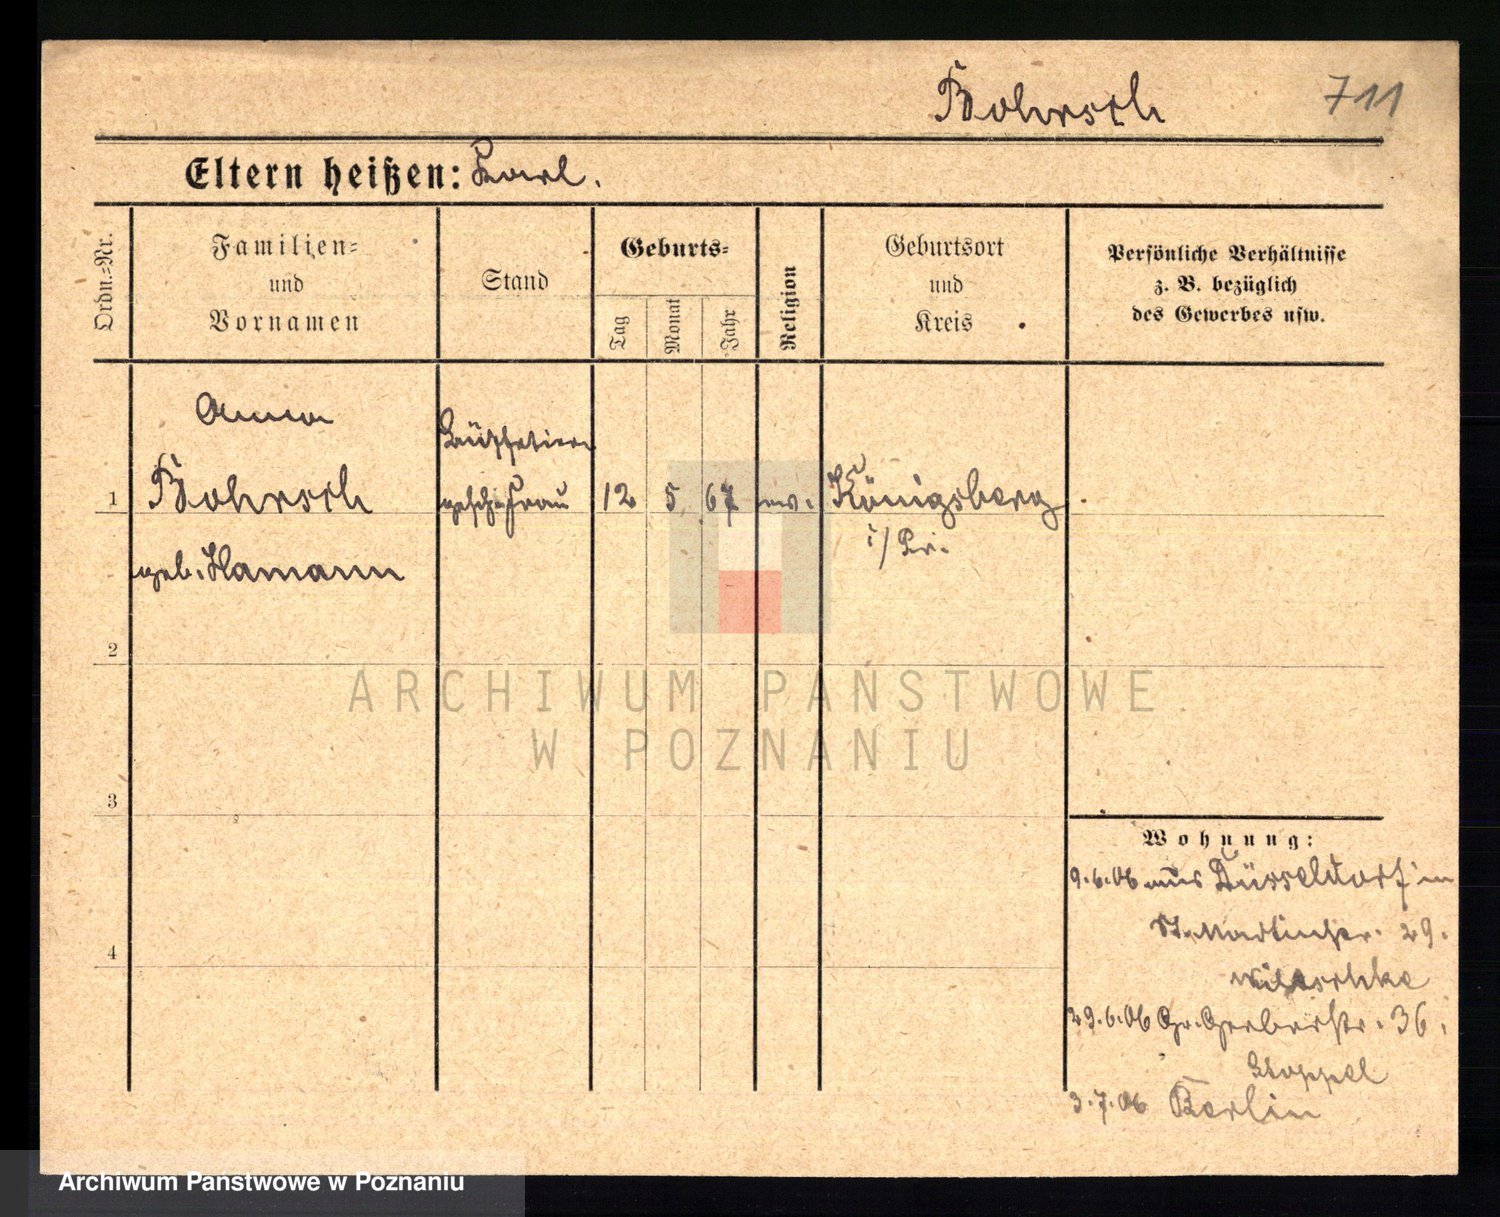 Bohrsch 711
Eltern heißen: Karl.
Ordn.=Nr.
Familien=
und
Vornamen
Stand
Geburts=
Tag
Monat
Jahr
Religion
Geburtsort
und
Kreis
Persönliche Verhältnisse
z. B. bezüglich
des Gewerbes usw.
Anna
1 Bohrsch
geb. Hamann
gesch. Frau
12 5 67 ev. Königsberg
i/Pr.
2
3
4
ARCHIWUM PAŃSTWOWE
W POZNANIU
Wohnung:
9.6.06 aus Düsseldorf in
St. Martinstr. 29.
29.6.06 Gr. Gerberstr. 36.
Stoppel
3.7.06 Berlin
Archiwum Państwowe w Poznaniu